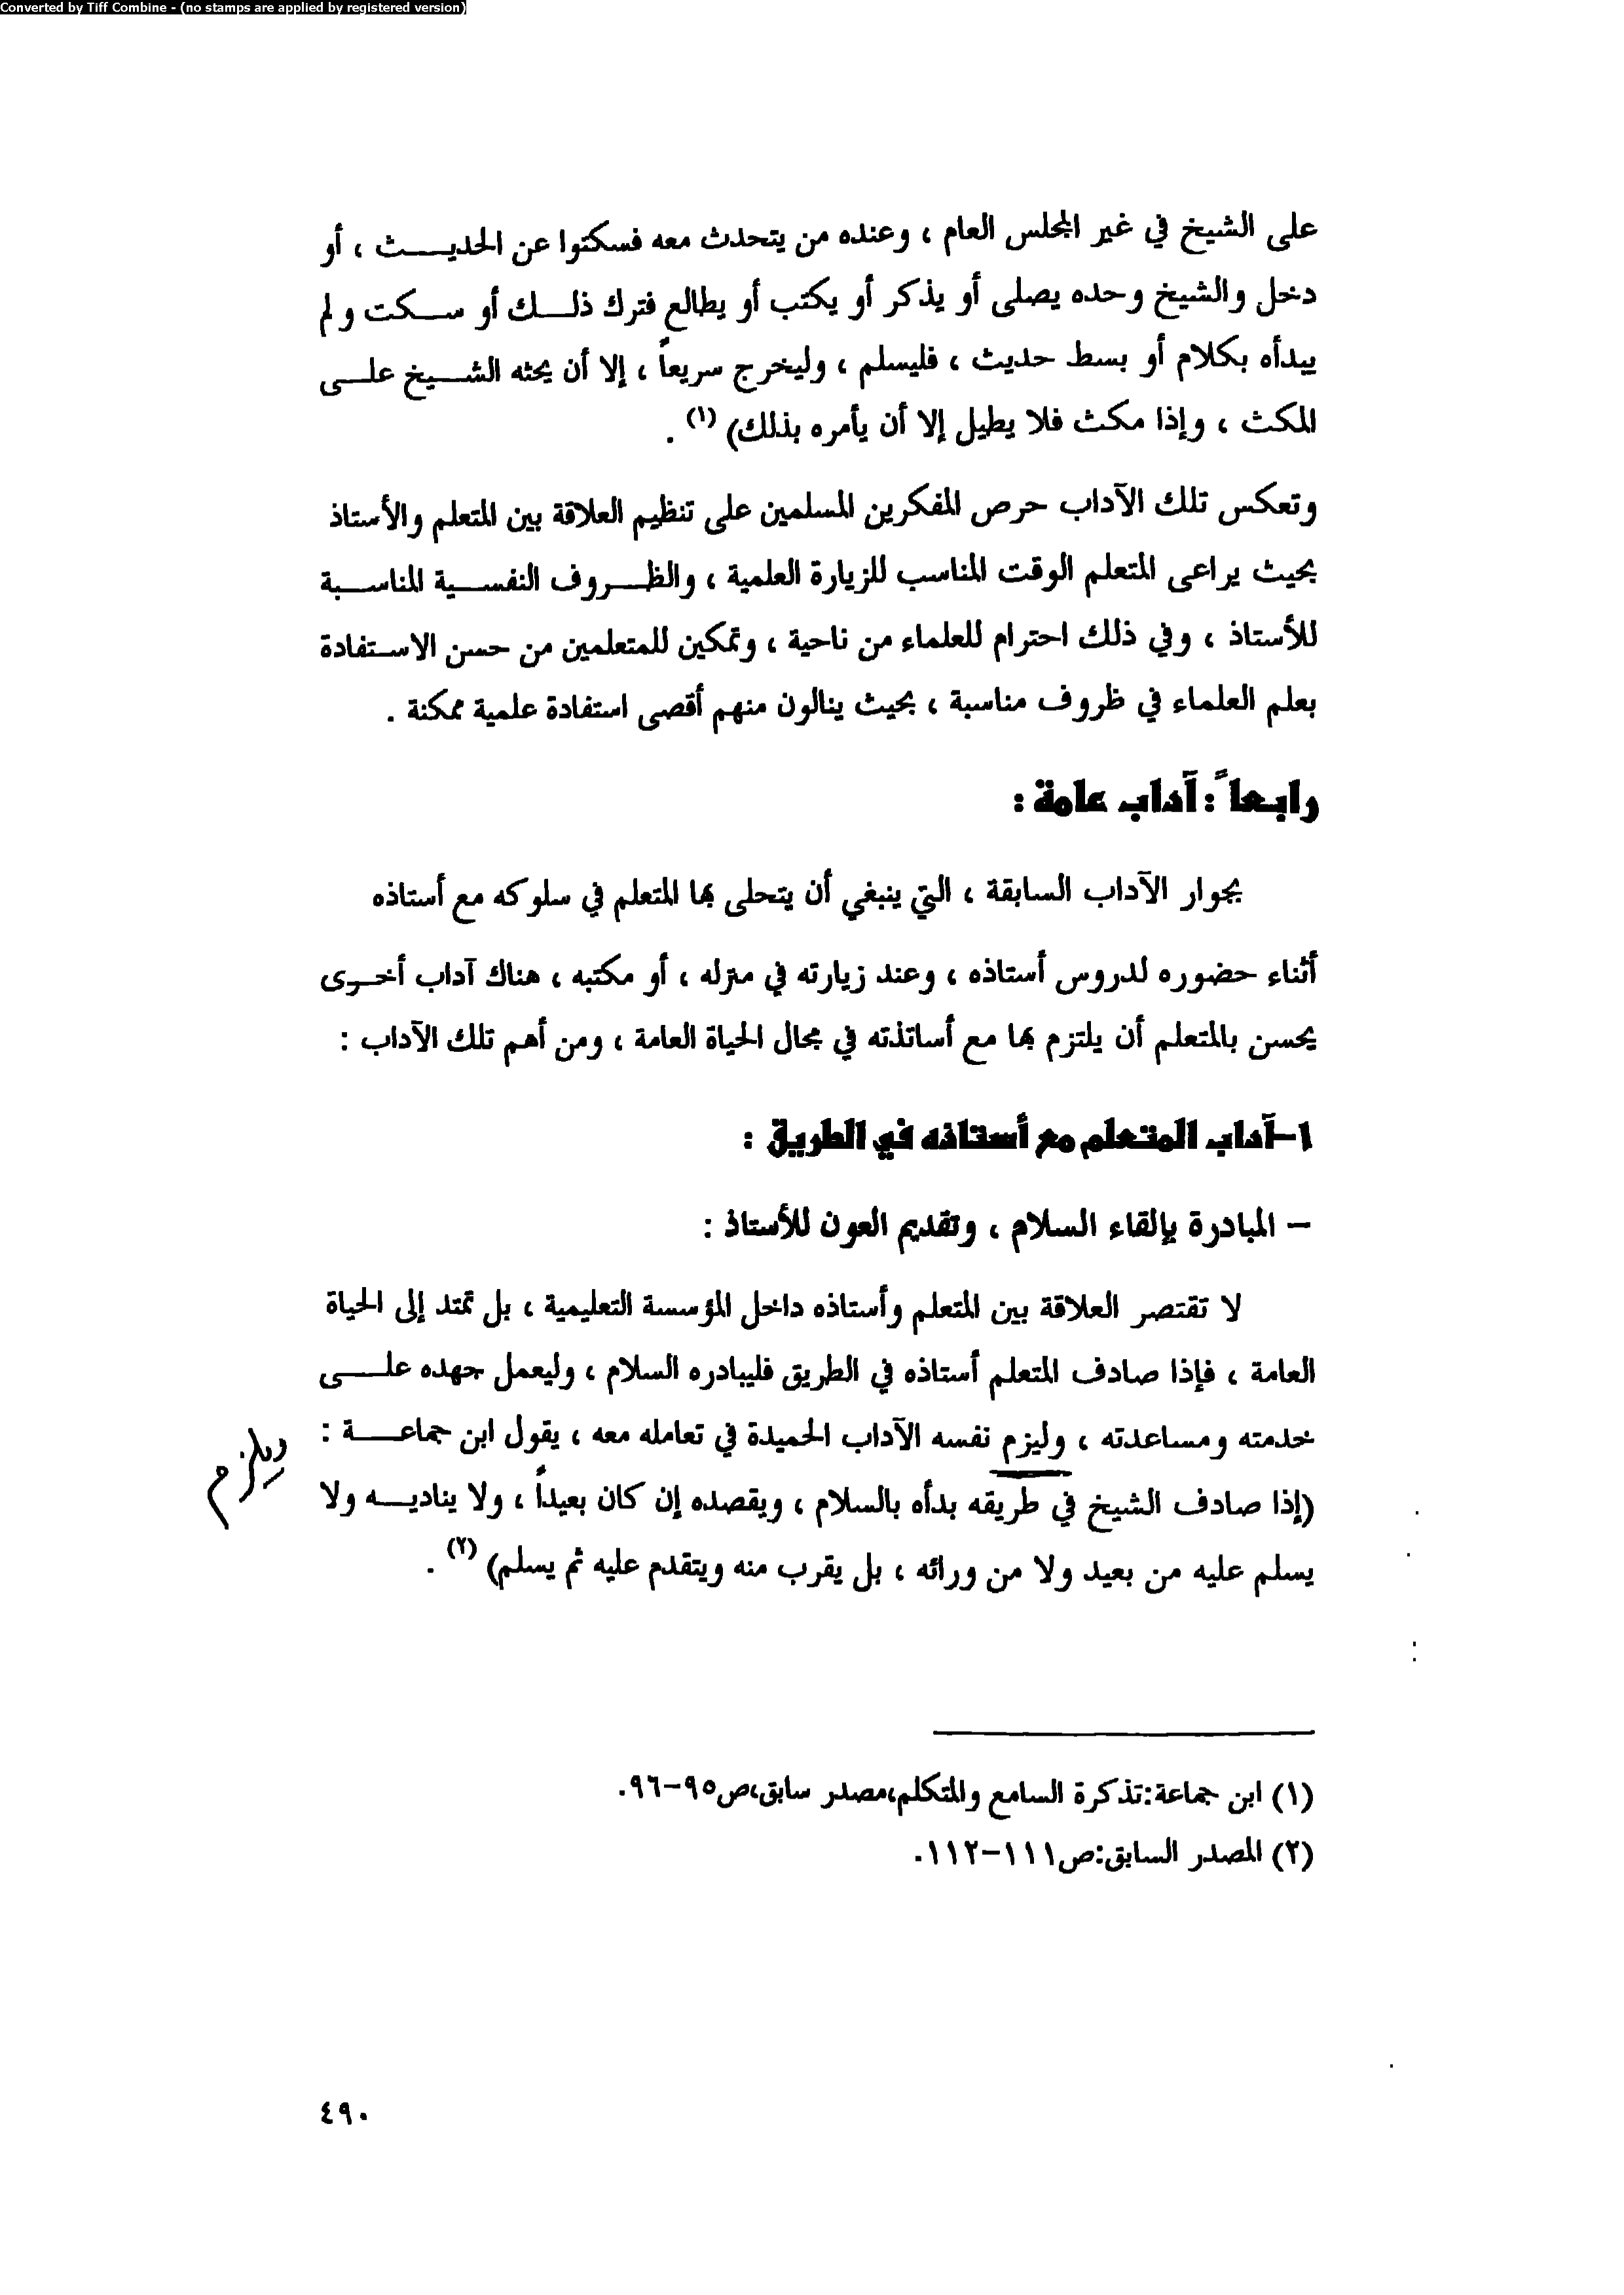 Converted by Tiff Combine - (no stamps are applied by registered version)
على الشيخ في غير المجلس العام ، وعنده من يتحدث معه فسكتوا عن الحديث ، أو
دخل والشيخ وحده يصلى أو يذكر أو يكتب أو يطالع فترك ذلك أو سكت ولم
يبدأه بكلام أو بسط حديث ، فليسلم ، وليخرج سريعاً ، إلا أن يحثه الشيخ على
المكث ، وإذا مكث فلا يطيل إلا أن يأمره بذلك) (١) .
وتعكس تلك الآداب حرص المفكرين المسلمين على تنظيم العلاقة بين المتعلم والأستاذ
بحيث يراعى المتعلم الوقت المناسب للزيارة العلمية ، والظروف النفسية المناسبة
للأستاذ ، وفي ذلك احترام للعلماء من ناحية ، وتمكين للمتعلمين من حسن الاستفادة
بعلم العلماء في ظروف مناسبة ، بحيث ينالون منهم أقصى استفادة علمية ممكنة .
رابعاً : آداب عامة :
بجوار الآداب السابقة ، التي ينبغي أن يتحلى بها المتعلم في سلوكه مع أستاذه
أثناء حضوره لدروس أستاذه ، وعند زيارته في منزله ، أو مكتبه ، هناك آداب أخرى
يحسن بالمتعلم أن يلتزم بها مع أساتذته في مجال الحياة العامة ، ومن أهم تلك الآداب :
١-آداب المتعلم مع أستاذه في الطريق :
– المبادرة بإلقاء السلام ، وتقديم العون للأستاذ :
لا تقتصر العلاقة بين المتعلم وأستاذه داخل المؤسسة التعليمية ، بل تمتد إلى الحياة
العامة ، فإذا صادف المتعلم أستاذه في الطريق فليبادره السلام ، وليعمل جهده على
خدمته ومساعدته ، وليزم نفسه الآداب الحميدة في تعامله معه ، يقول ابن جماعة :
ويلزم
(إذا صادف الشيخ في طريقه بدأه بالسلام ، ويقصده إن كان بعيداً ، ولا يناديه ولا
يسلم عليه من بعيد ولا من ورائه ، بل يقرب منه ويتقدم عليه ثم يسلم) (٢) .
(١) ابن جماعة:تذكرة السامع والمتكلم،مصدر سابق،ص٩٥-٩٦.
(٢) المصدر السابق:ص١١١-١١٢.
٤٩٠